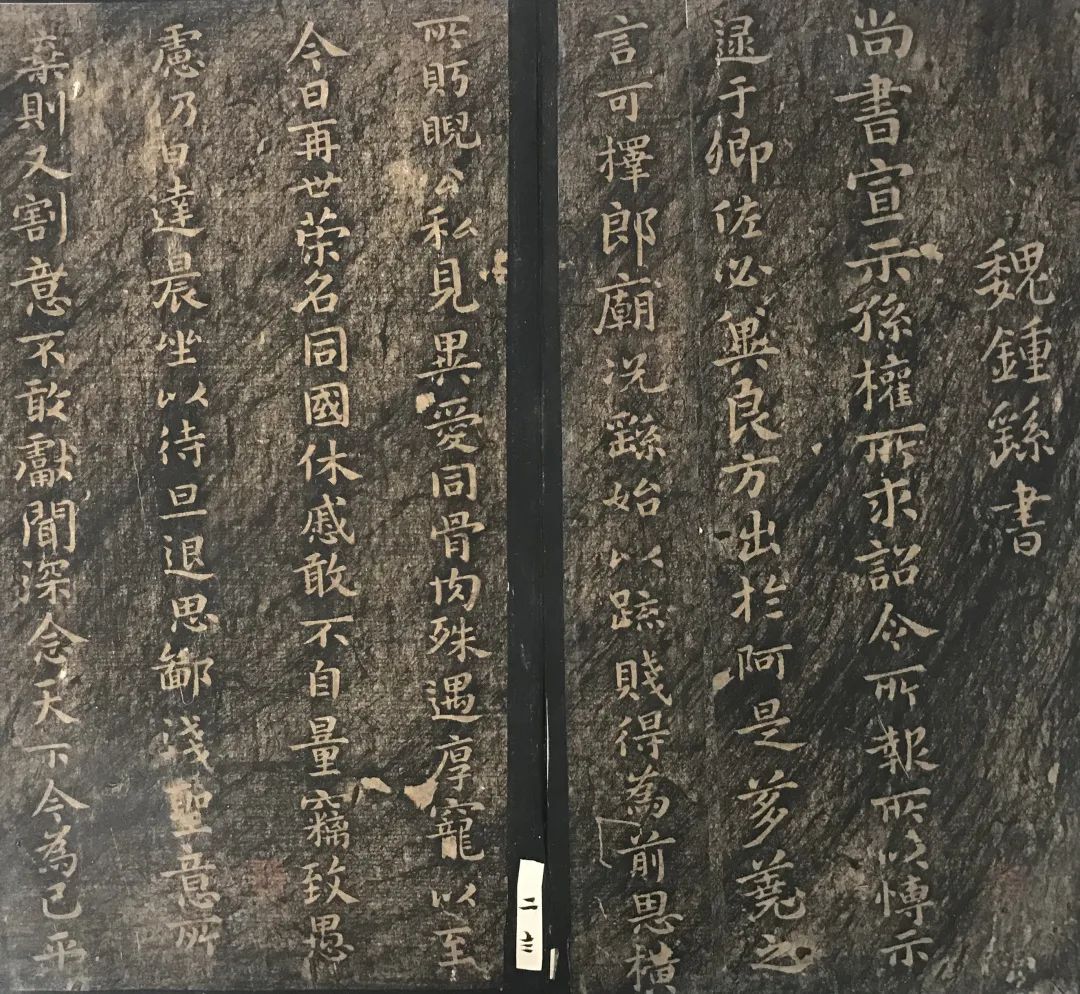 魏鍾繇書
尚書宣示孫權所求詔令所報所以博示
逮于卿佐必冀良方出於阿是芻蕘之
言可擇郎廟況繇始以疏賤得為前恩橫
所眄睨公私見異愛同骨肉殊遇厚寵以至
今日再世榮名同國休慼敢不自量竊致愚
慮仍日達晨坐以待旦退思鄙淺聖意所
棄則又割意不敢獻聞深念天下今為已平
二 三